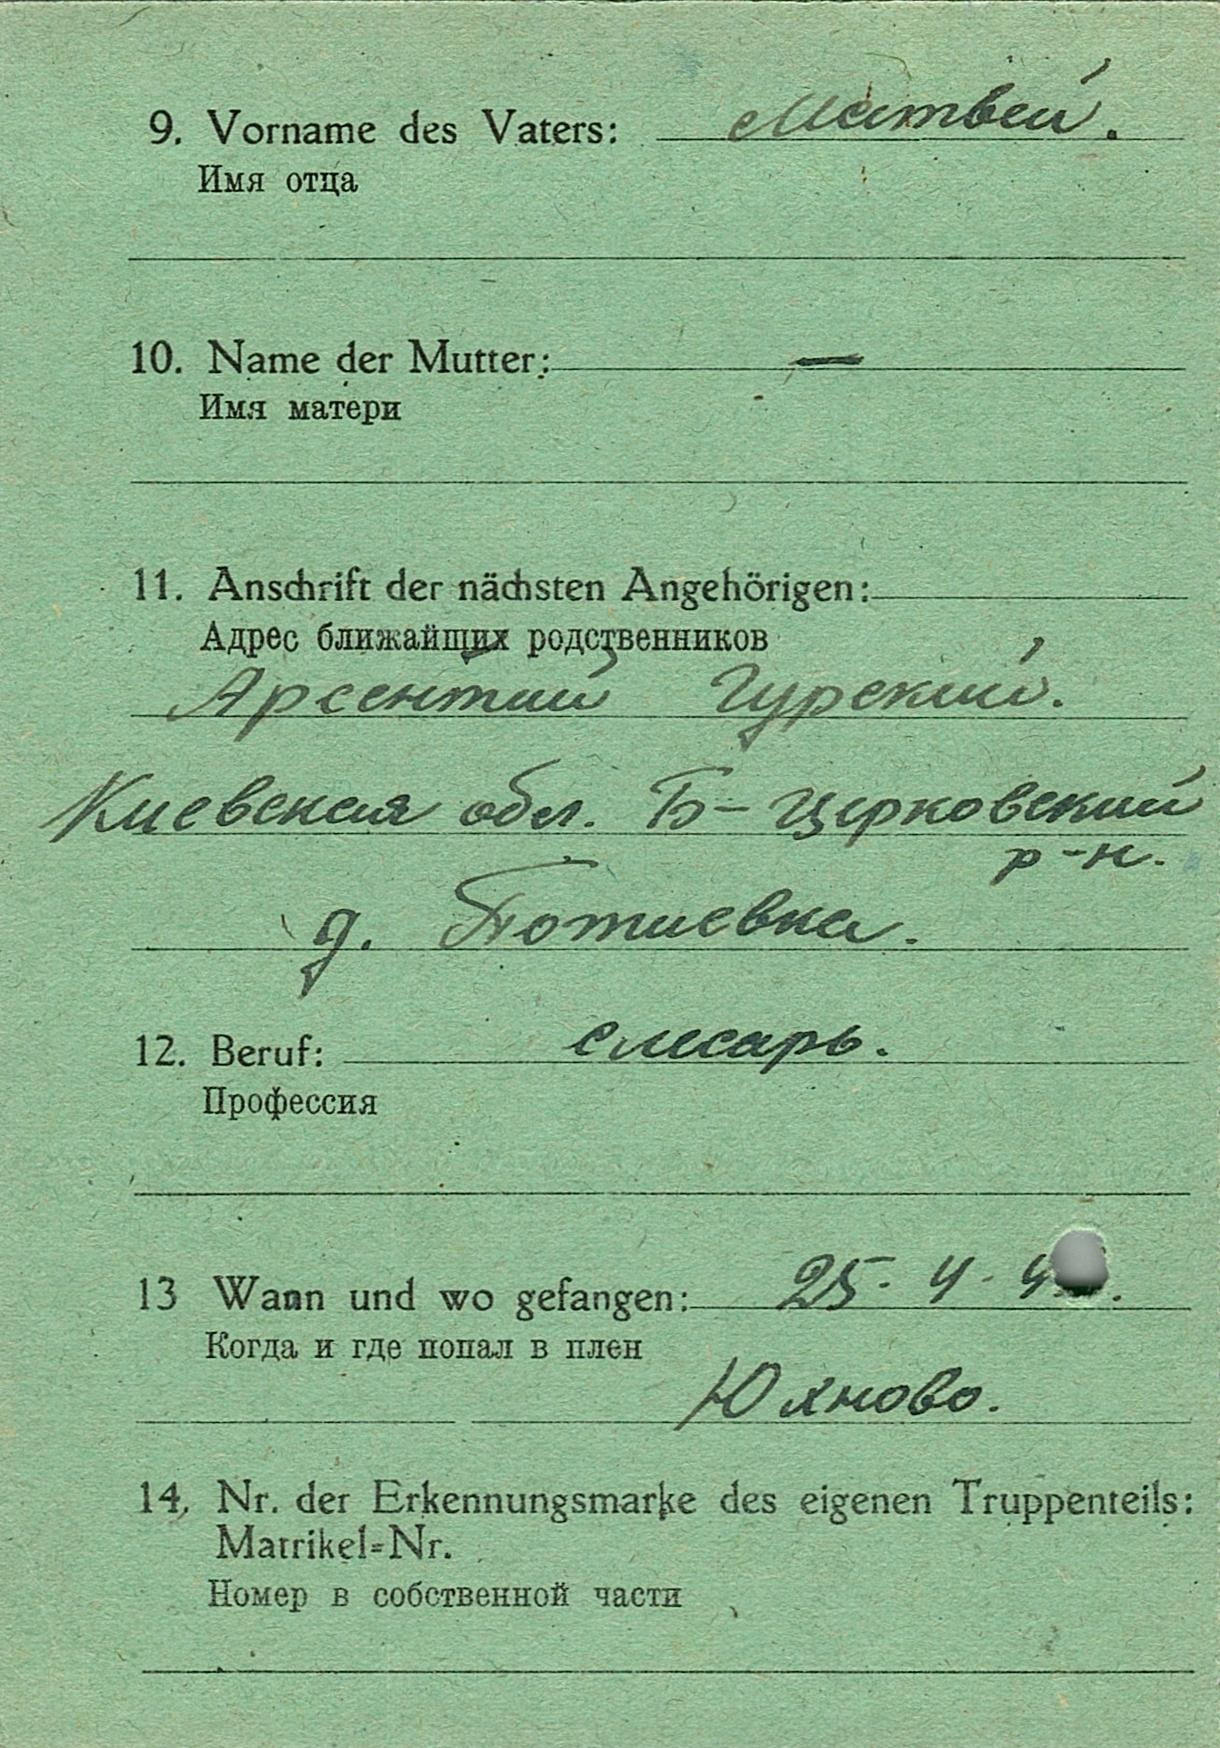 9. Vorname des Vaters: Матвей.
Имя отца
10. Name der Mutter: —
Имя матери
11. Anschrift der nächsten Angehörigen:
Адрес ближайщих родственников
Арсентий Гурский.
Киевская обл. Б-Церковский
р-н.
д. Потиевка.
12. Beruf: слесарь.
Профессия
13 Wann und wo gefangen: 25. 4. 4
Когда и где попал в плен
Юхново.
14. Nr. der Erkennungsmarke des eigenen Truppenteils:
Matrikel-Nr.
Номер в собственной части